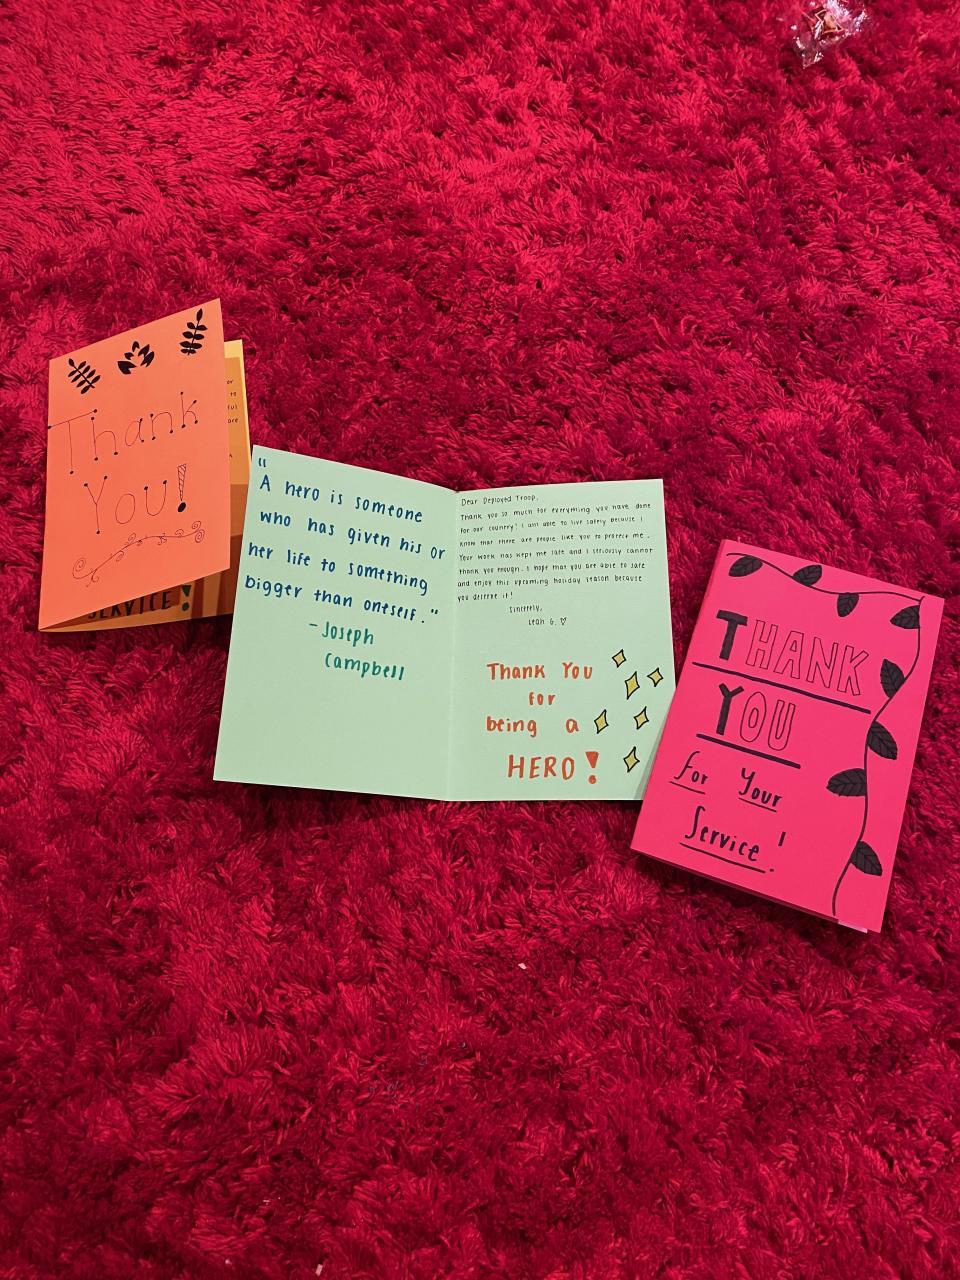 Thank
You!
or
to
ful
are
SERVICE!
"
A hero is someone
who has given his or
her life to something
bigger than oneself."
- Joseph
Campbell
Dear Deployed Troop,
Thank you so much for everything you have done
for our country! I am able to live safely because I
know that there are people like you to protect me.
Your work has kept me safe and I seriously cannot
thank you enough. I hope that you are able to safe
and enjoy this upcoming holiday season because
you deserve it!
Sincerely,
Leah G. ♡
Thank You
for
being a
HERO!
THANK
YOU
for Your
Service!